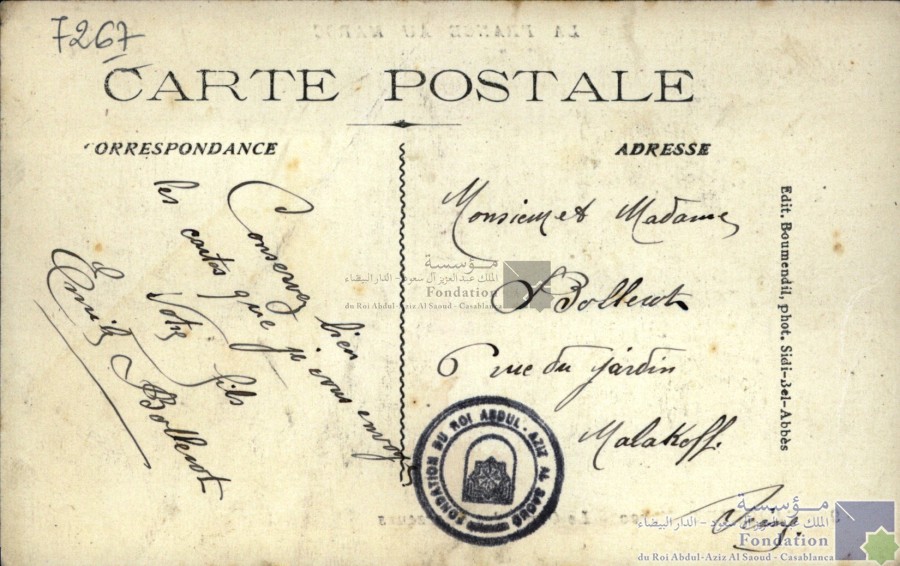 7267
LA FRANCE AU MAROC
CARTE POSTALE
CORRESPONDANCE
ADRESSE
Conservez bien
les cartes que je vous envoy
Votre fils
Emile Bollerot
Monsieur et Madame
Bollerot
6 rue du jardin
Malakoff
Seine
Edit. Boumendil, phot. Sidi-Bel-Abbès
مؤسسة
الملك عبد العزيز آل سعود - الدار البيضاء
Fondation
du Roi Abdul-Aziz Al Saoud - Casablanca
FONDATION DU ROI ABDUL-AZIZ AL SAOUD
مؤسسة
الملك عبد العزيز آل سعود - الدار البيضاء
Fondation
du Roi Abdul-Aziz Al Saoud - Casablanca